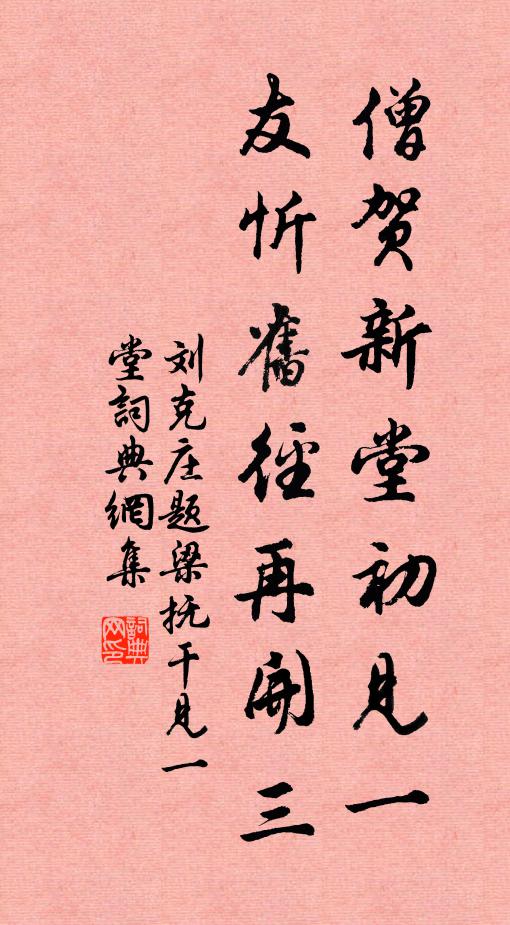 僧贺新堂初见一
友忻舊径再開三
刘克庄题梁抚干见一
堂詞典網集
詞典网印